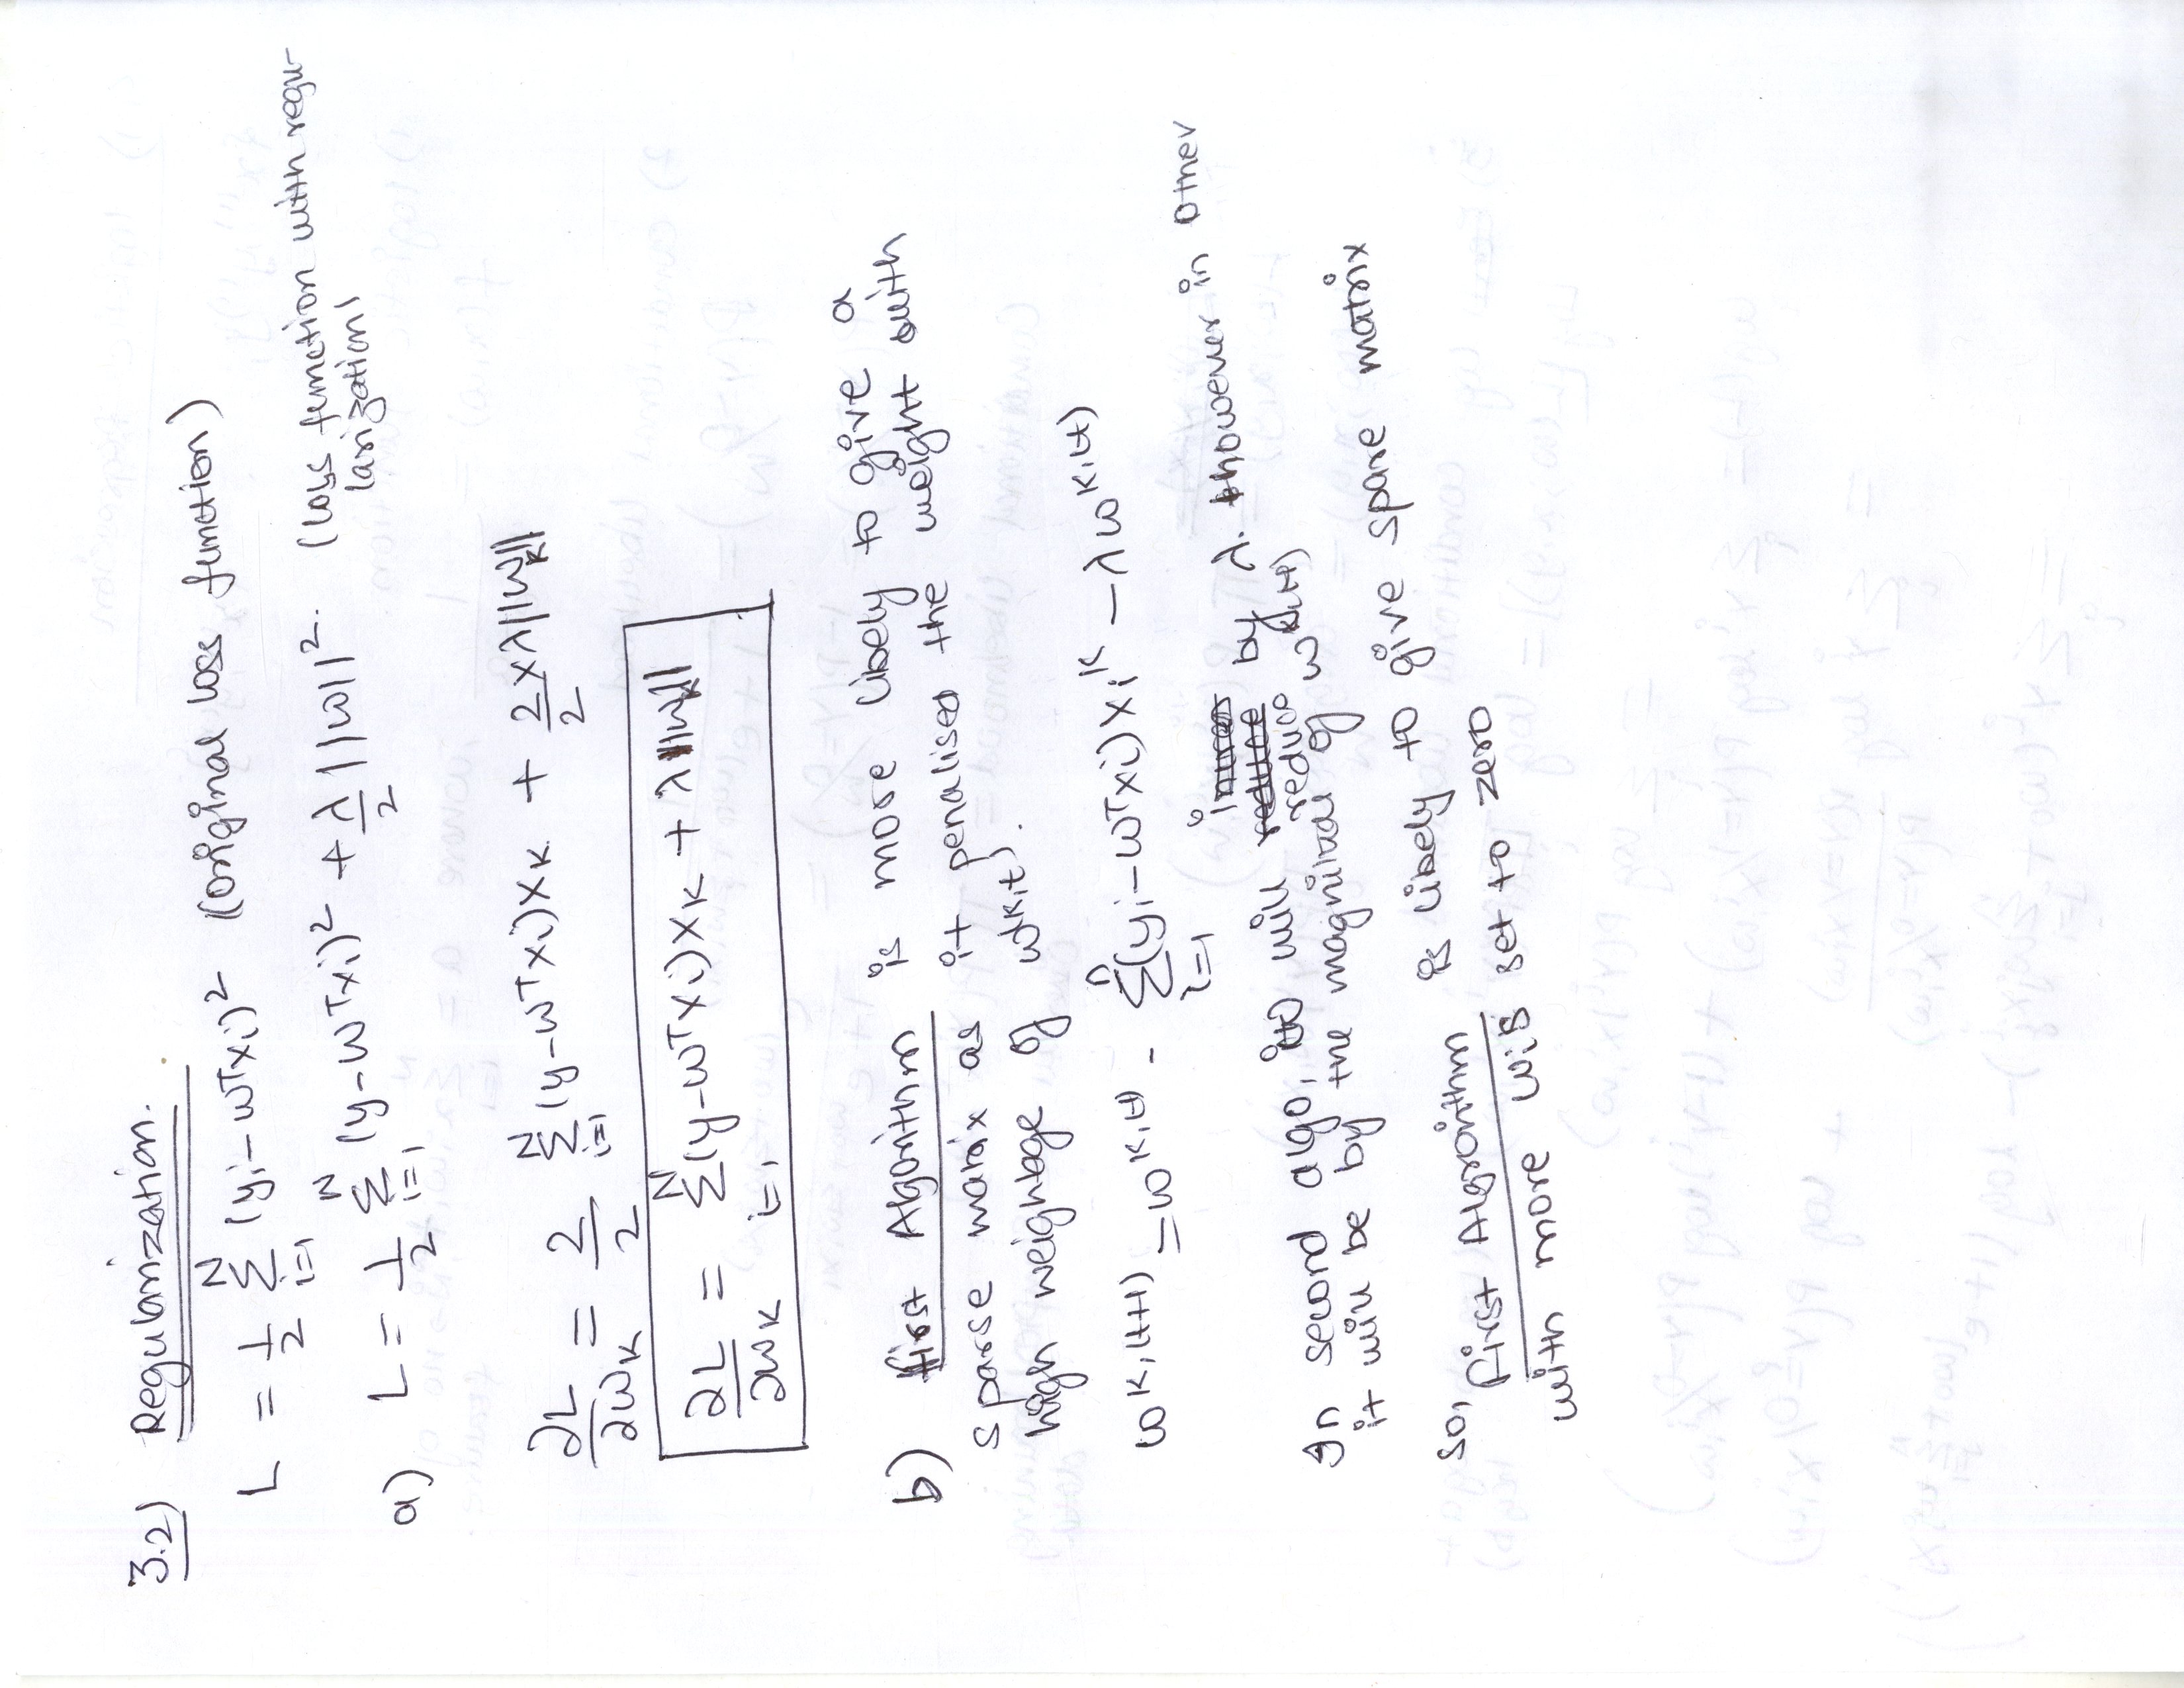 3.2) Regularization.
L = 1/2 N Σ i=1 (yi - wᵀxi)² (original loss function)
a) L = 1/2 N Σ i=1 (y - wᵀxi)² + λ/2 ||w||². (loss function with regu-
larization)
∂L/∂wK = 2/2 N Σ i=1 (y - wᵀxi)xK + 2×λ/2 ||wK||
∂L/∂wK = N Σ i=1 (y - wᵀxi)xK + λ wK
b) First Algorithm is more likely to give a
sparse matrix as it penalised the weight with
high weightage of wK,t).
wK,(t+1) = wK,(t) - n Σ i=1 (yi - wᵀxi)xiᴷ - λwK,(t)
In second algo, it will reduce by λ. however in other
it will be by the magnitude of wK,(t)
So, First Algorithm is likely to give sparse matrix
with more wi's set to zero